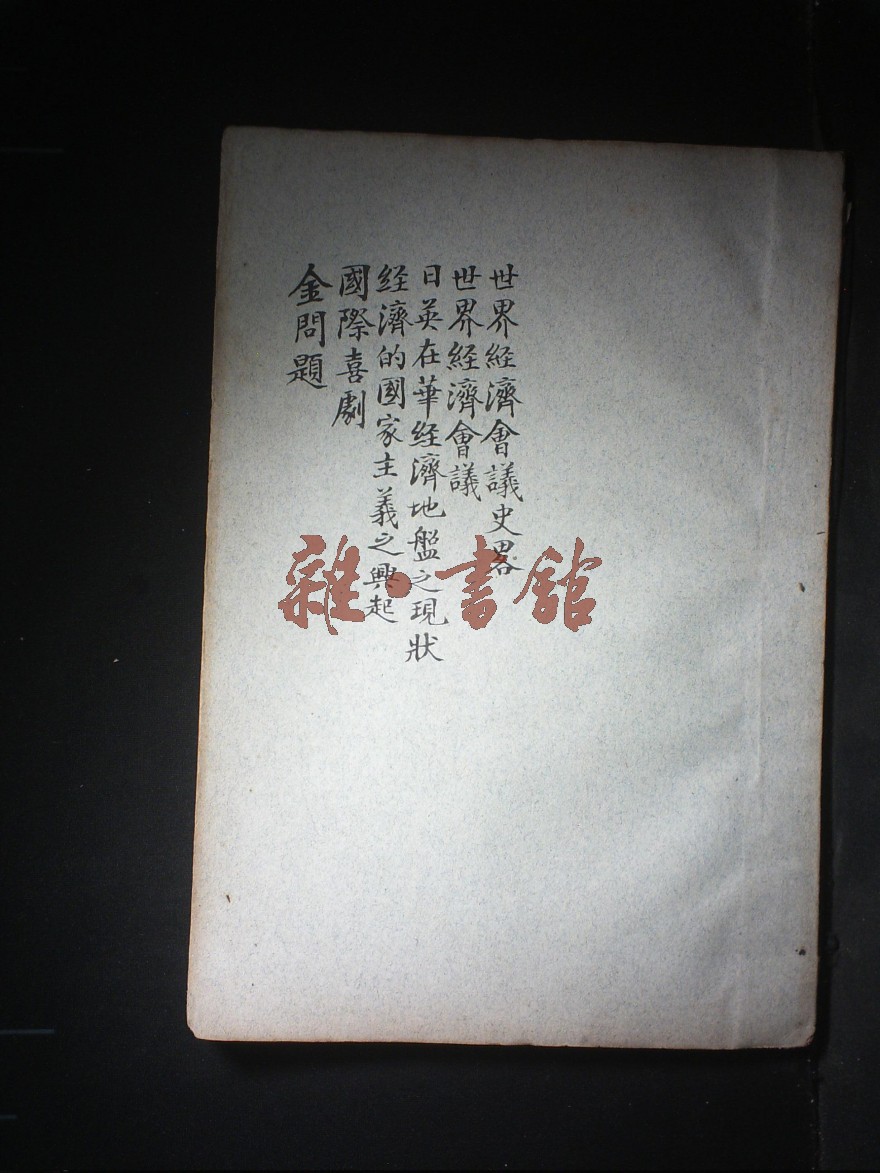 世界経濟會議史畧
世界経濟會議
日英在華経濟地盤之現狀
経濟的國家主義之興起
國際喜劇
金問題
雜·書館